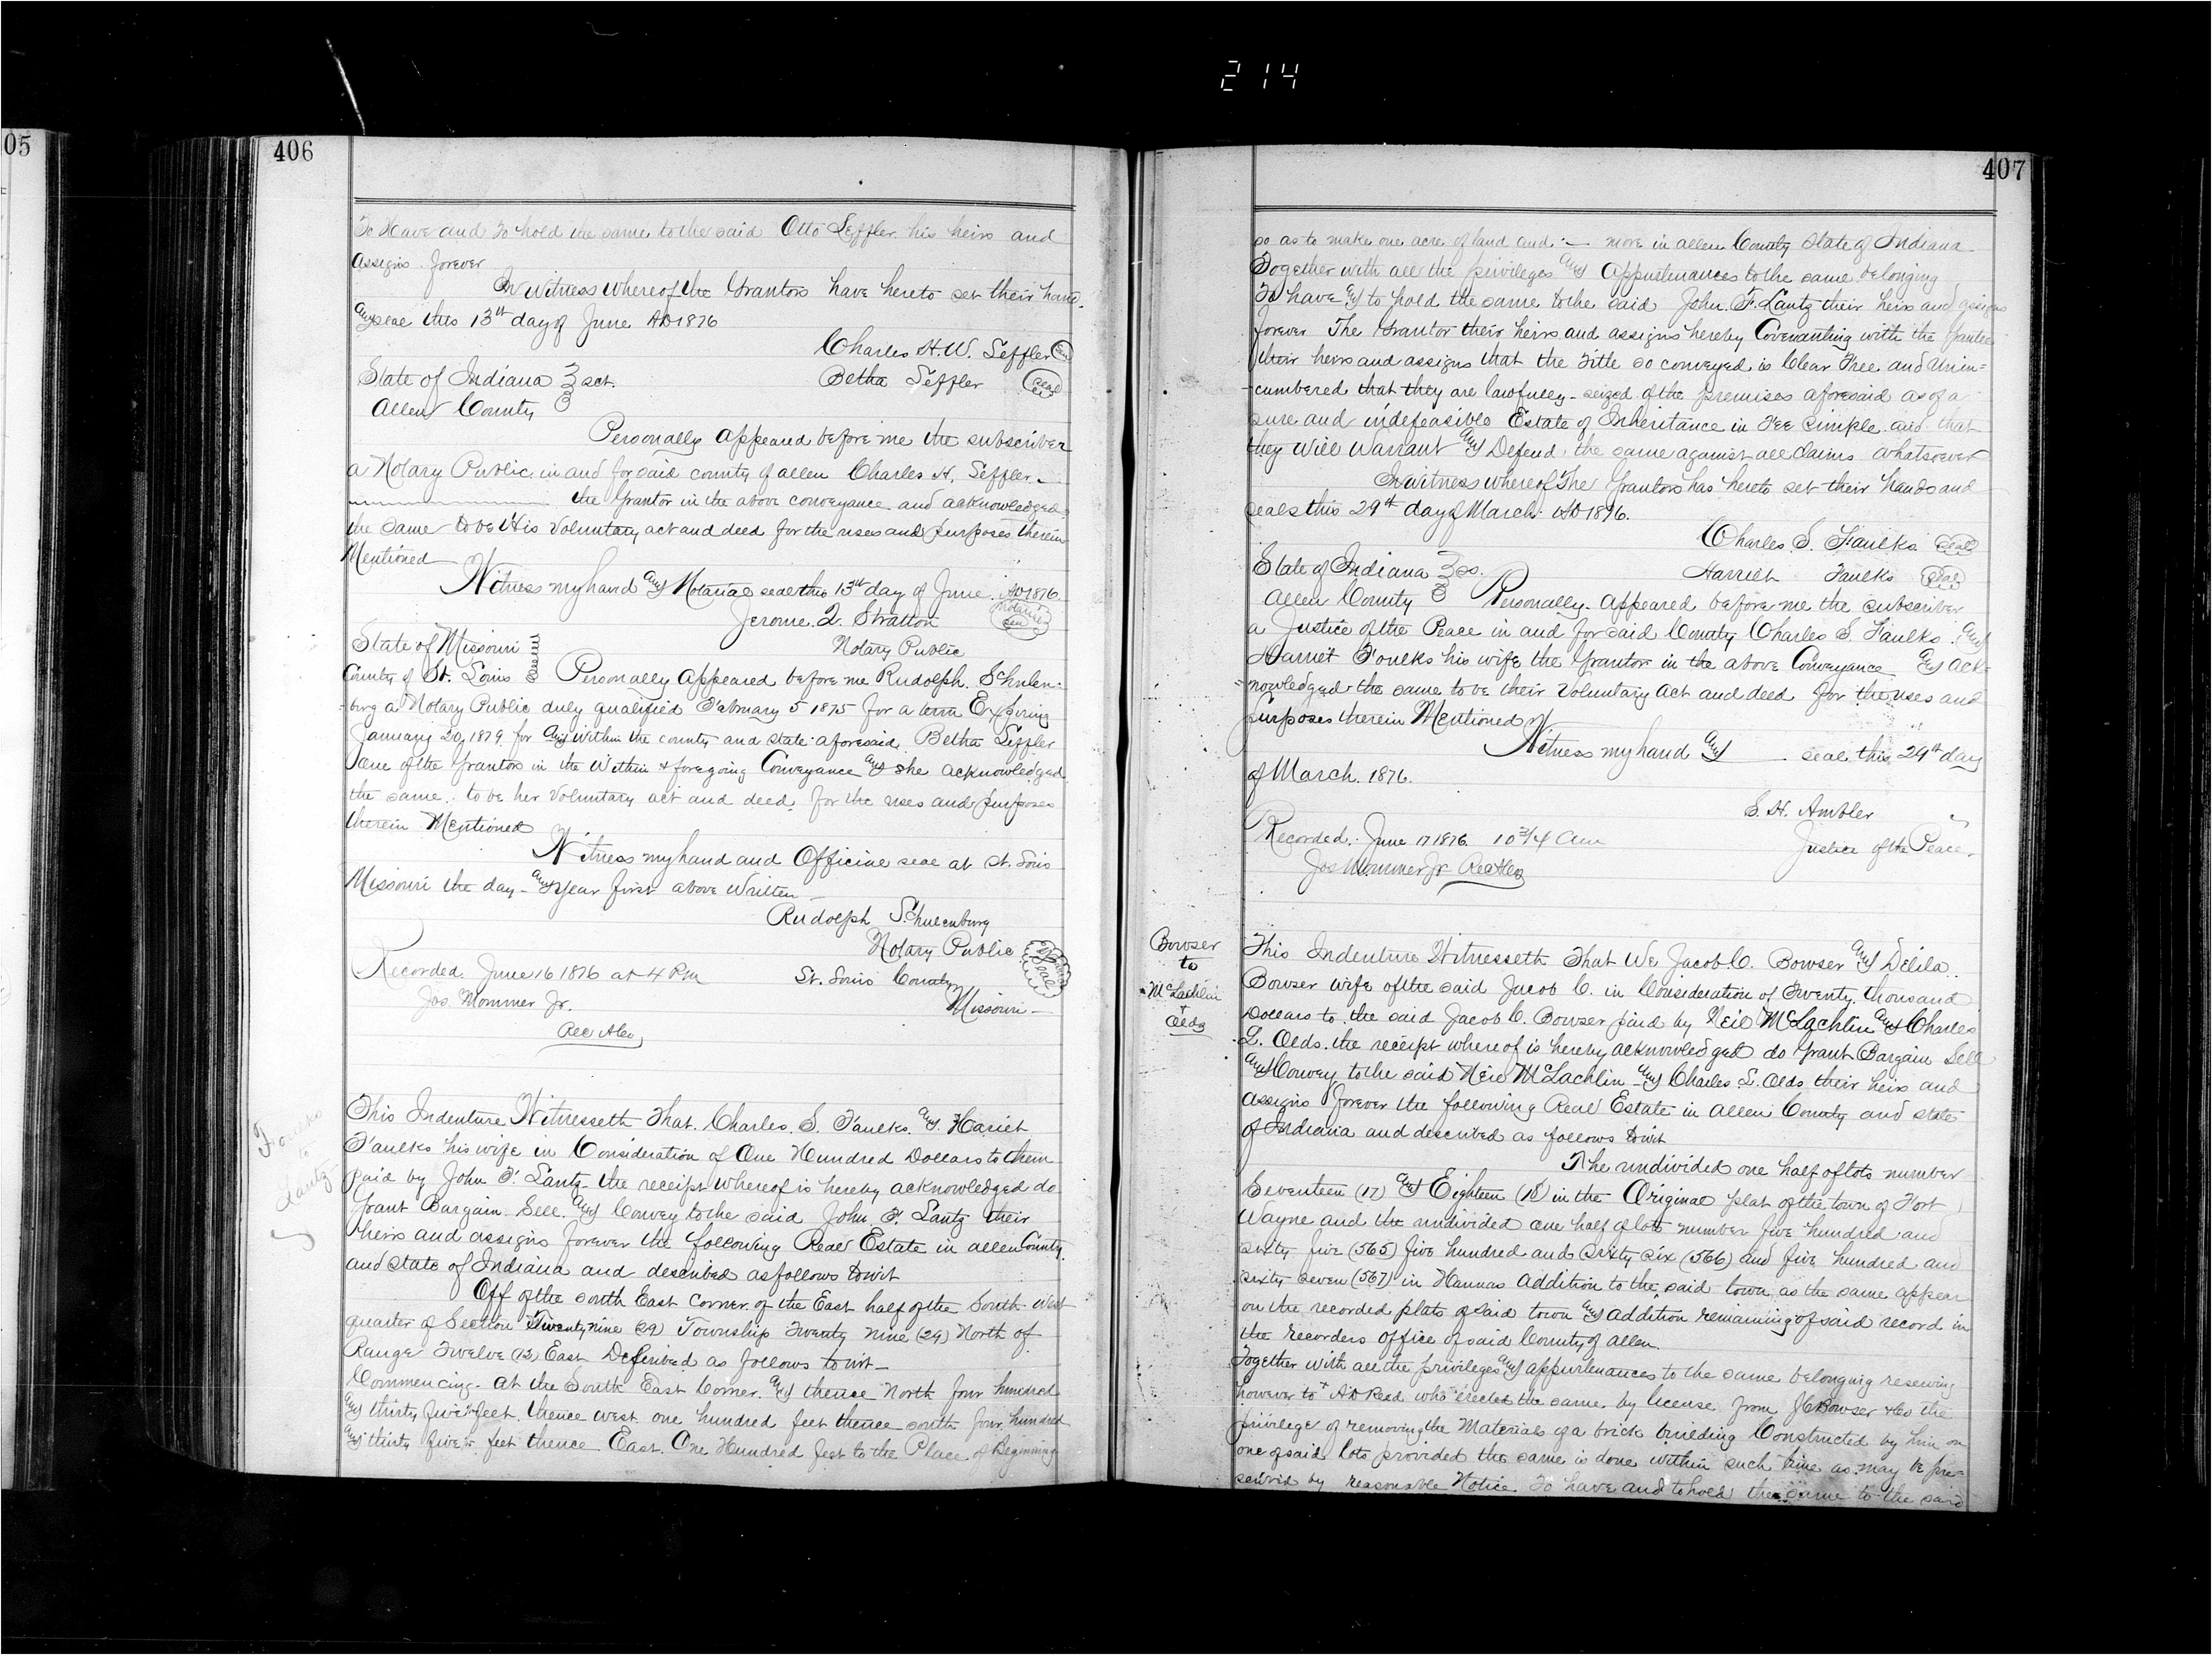 214
05
406
To Have and To hold the same to the said Otto Seffler his heirs and
assigns forever
In witness whereof the Grantors have hereto set their hand
and seal this 13th day of June AD 1876
Charles H. W. Seffler seal
State of Indiana } sct. Betha Seffler seal
Allen County }
Personally appeared before me the subscriber
a Notary Public in and for said county of allen Charles H. Seffler
the Grantor in the above conveyance and acknowledged
the same to be His voluntary act and deed for the uses and purposes therein
Mentioned
Witness my hand and Notarial seal this 13th day of June AD 1876
Jerome Q. Stratton Notarial seal
State of Missouri } Notary Public
County of St. Louis } Personally appeared before me Rudolph Schulen-
burg a Notary Public duly qualified February 5 1875 for a term Expiring
January 20, 1879 for and within the county and state aforesaid, Betha Seffler
one of the Grantors in the within & foregoing Conveyance and she acknowledged
the same to be her voluntary act and deed for the uses and purposes
therein Mentioned
Witness my hand and Official seal at St. Louis
Missouri the day and year first above written
Rudolph Schulenburg
Notary Public
Recorded June 16 1876 at 4 Pm St. Louis County
Jos. Mommer Jr. Missouri
Rec Aco
Faulks
to
Lantz
This Indenture Witnesseth That Charles S. Faulks and Hariet
Faulks his wife in Consideration of One Hundred Dollars to them
paid by John F. Lantz the receipt whereof is hereby acknowledged do
Grant Bargain Sell and Convey to the said John F. Lantz their
heirs and assigns forever the following Real Estate in allen County
and state of Indiana and described as follows to wit
Off of the south East corner of the East half of the South West
quarter of Section Twenty nine (29) Township Twenty nine (29) North of
Range Twelve (12) East Described as follows to wit
Commencing at the South East Corner and thence North four hundred
and thirty five feet, thence west one hundred feet thence south four hundred
and thirty five feet thence East One Hundred feet to the Place of Beginning
407
so as to make one acre of land and :— more in allen County State of Indiana
Together with all the privileges and appurtenances to the same belonging
To have and to hold the same to the said John F. Lantz their heirs and assigns
forever The Grantor their heirs and assigns hereby Covenanting with the Grantee
their heirs and assigns that the Title so conveyed is Clear Free and Unin=
=cumbered that they are lawfully seized of the premises aforesaid as of a
sure and indefeasible Estate of Inheritance in Fee simple and that
they will warrant and Defend the same against all claims whatsoever
In witness whereof The Grantors has hereto set their hands and
seals this 29th day of March AD 1876.
Charles S. Faulks seal
State of Indiana } ss. Harriet Faulks seal
Allen County } Personally appeared before me the subscriber
a Justice of the Peace in and for said County Charles S. Faulks and
Harriet Foulks his wife the Grantor in the above Conveyance and ack=
=nowledged the same to be their voluntary act and deed for the uses and
purposes therein Mentioned
Witness my hand and seal this 29th day
of March 1876.
S. H. Ambler
Recorded June 17 1876 10 3/4 Am Justice of the Peace
Jos Mommer Jr Rec Aco
Bowser
to
McLachlin
+
Olds
This Indenture Witnesseth That We Jacob C. Bowser and Delila
Bowser wife of the said Jacob C. in Consideration of Twenty thousand
Dollars to the said Jacob C. Bowser paid by Neil McLachlin and Charles
L. Olds the receipt whereof is hereby acknowledged do Grant Bargain Sell
and Convey to the said Neil McLachlin and Charles L. Olds their heirs and
assigns forever the following Real Estate in allen County and state
of Indiana and described as follows to wit
The undivided one half of lots number
Seventeen (17) and Eighteen (18) in the Original plat of the town of Fort
Wayne and the undivided one half of lots number five hundred and
sixty five (565) five hundred and sixty six (566) and five hundred and
sixty seven (567) in Hannas addition to the said town as the same appear
on the recorded plats of said town and addition remaining of said record in
the recorders office of said County of allen.
Together with all the privileges and appurtenances to the same belonging reserving
however to A D Reed who erected the same by license from J C Bowser & Co the
privilege of removing the Materials of a brick building Constructed by him on
one of said lots provided the same is done within such time as may be pre=
scribed by reasonable Notice. To have and to hold the same to the said